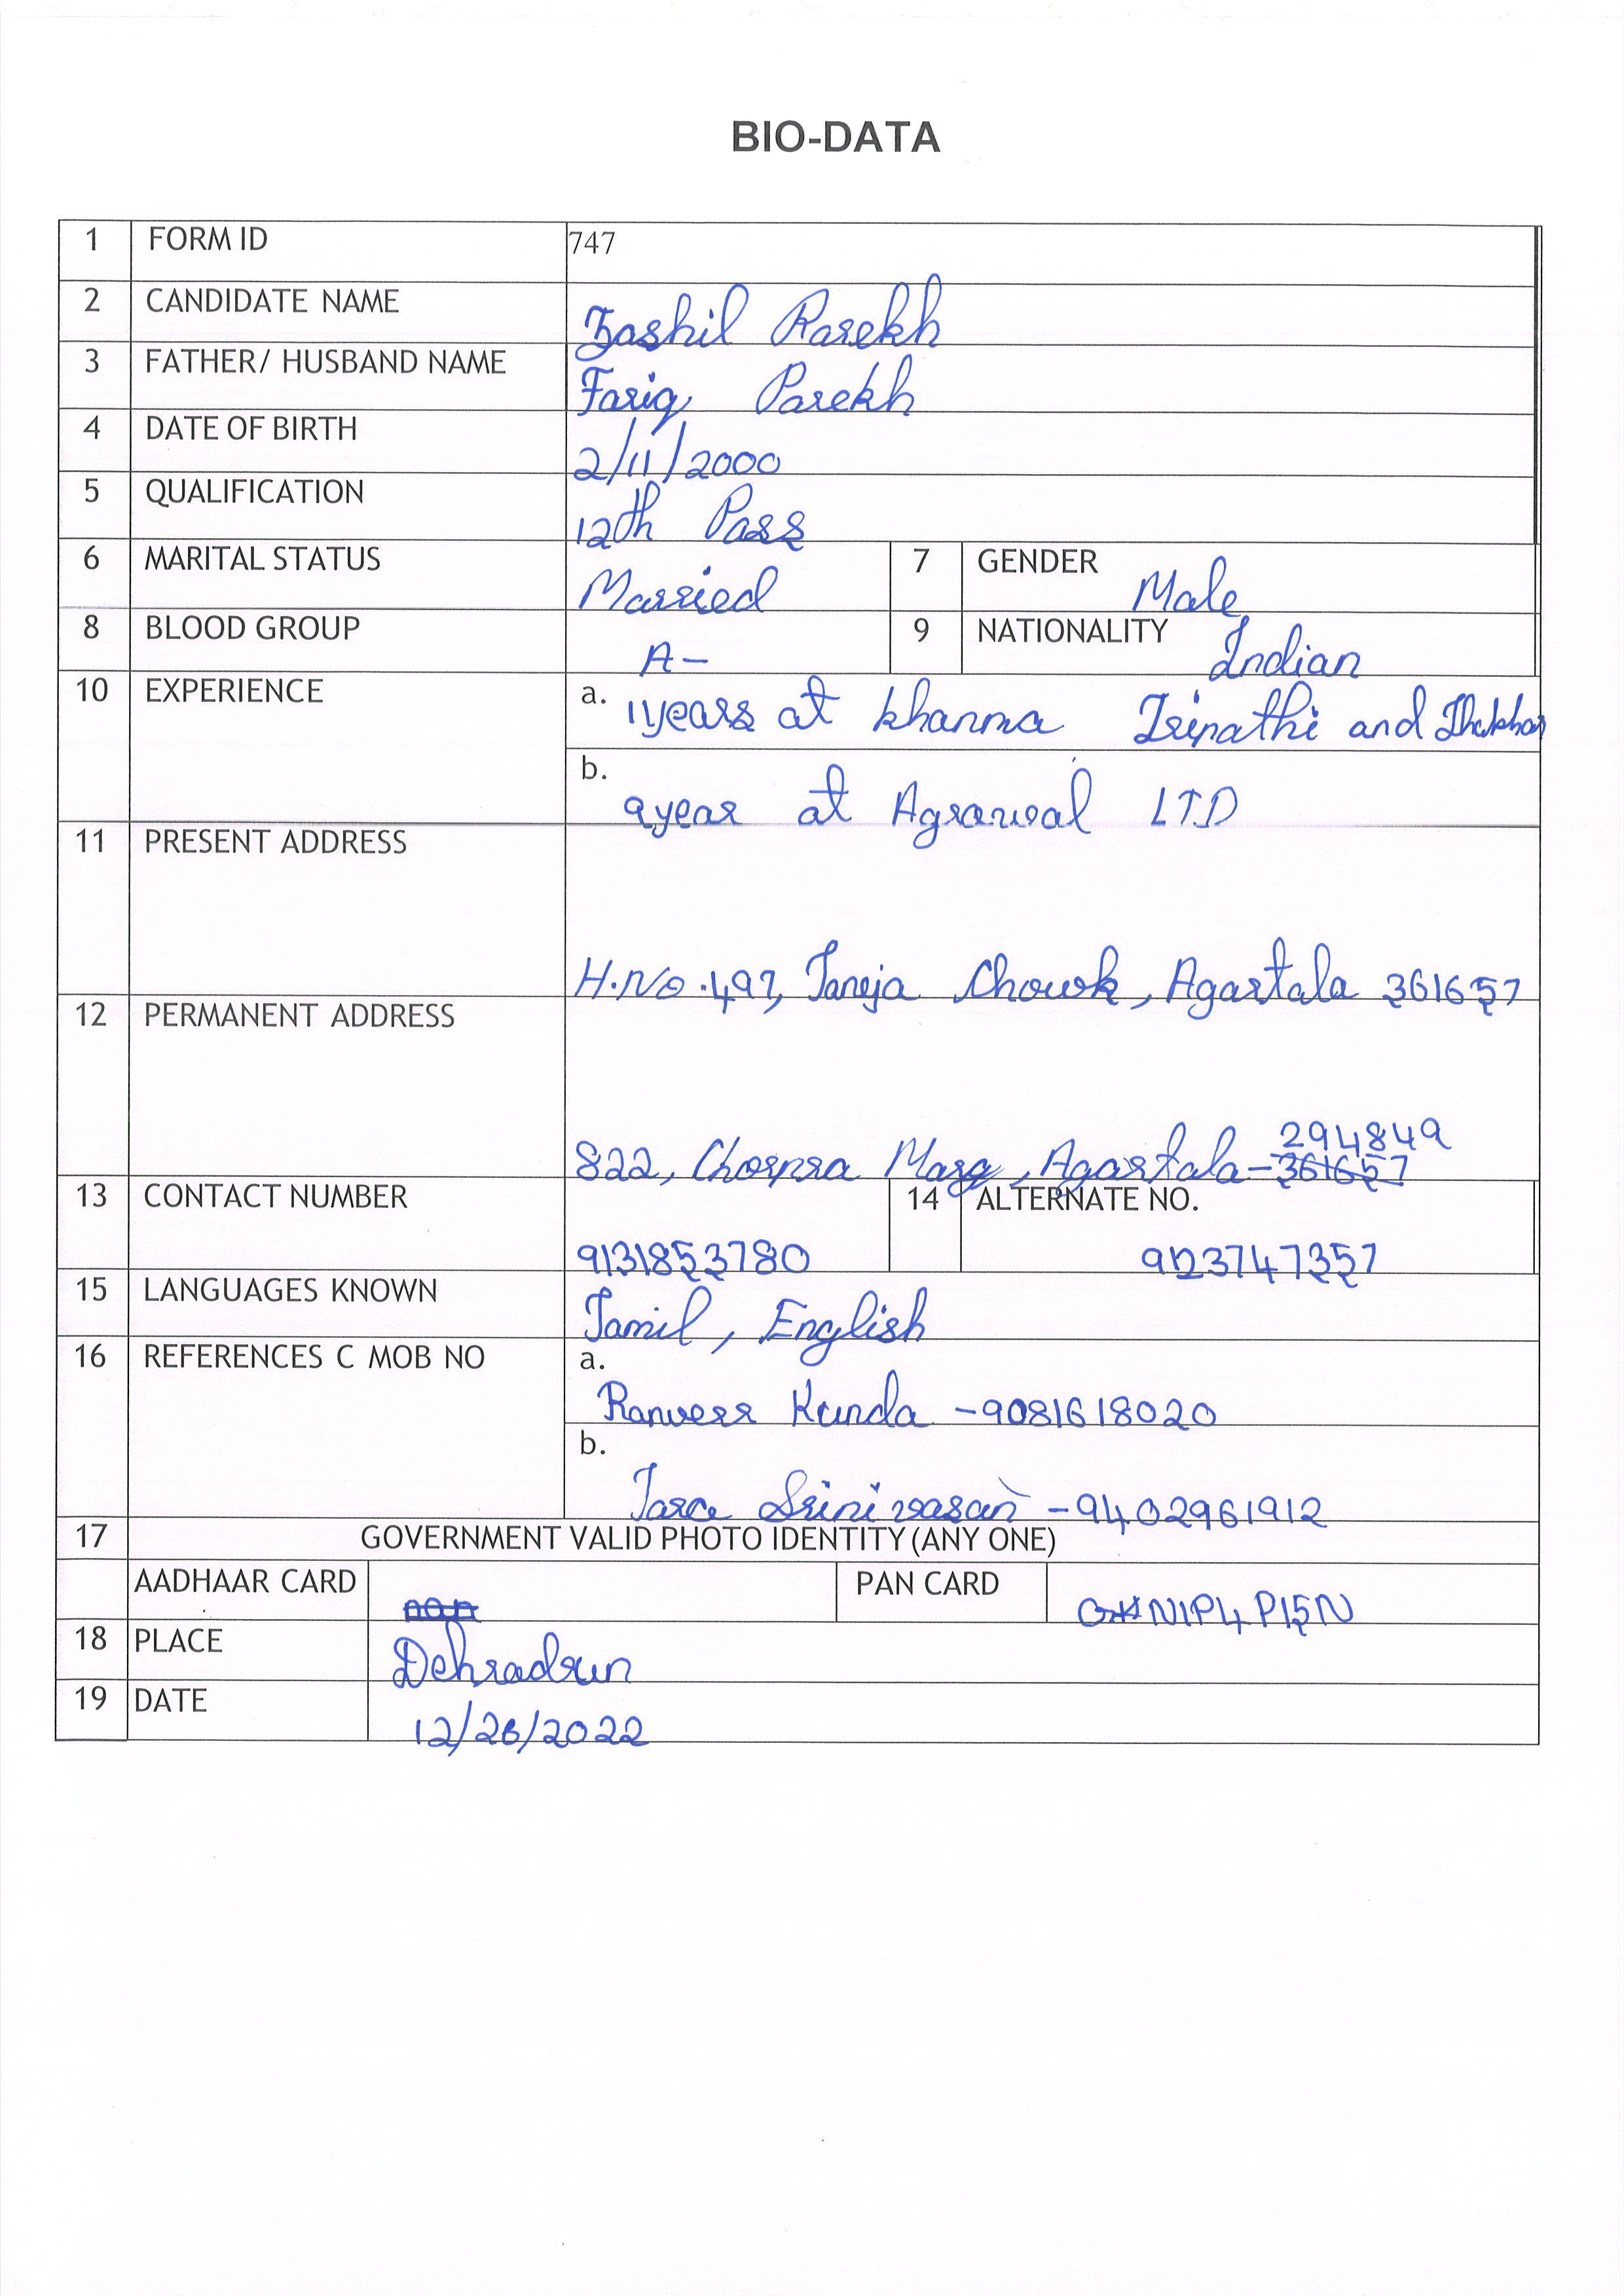 BIO-DATA
1 FORM ID 747
2 CANDIDATE NAME Zashil Parekh
3 FATHER/ HUSBAND NAME Fariq Parekh
4 DATE OF BIRTH 2/11/2000
5 QUALIFICATION 12th Pass
6 MARITAL STATUS Married 7 GENDER Male
8 BLOOD GROUP A- 9 NATIONALITY Indian
10 EXPERIENCE a. 1years at khanna Tripathi and Thakhar
b. 9year at Agrawal LTD
11 PRESENT ADDRESS
H.No.497, Taneja Chowk, Agartala 361657
12 PERMANENT ADDRESS
294849
822, Chorpra Marg, Agartala-361657
13 CONTACT NUMBER 9131853780 14 ALTERNATE NO. 9123747357
15 LANGUAGES KNOWN Tamil, English
16 REFERENCES C MOB NO a.
Ranveer Kunda -9081618020
b.
Tara Srinivasan -9402961912
17 GOVERNMENT VALID PHOTO IDENTITY (ANY ONE)
AADHAAR CARD nan PAN CARD
18 PLACE Dehradun
19 DATE 12/26/2022